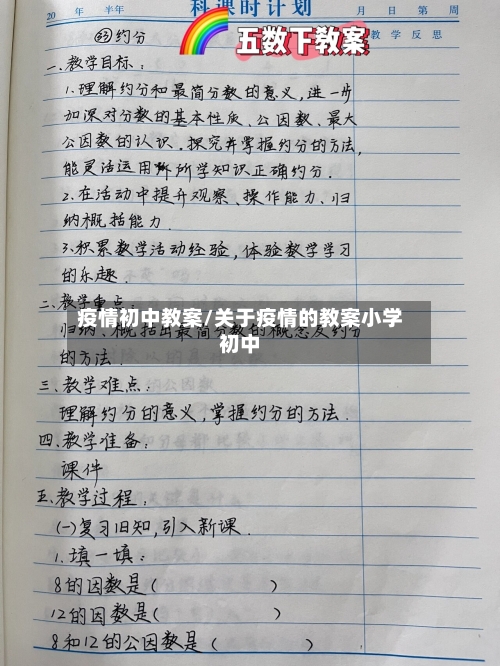 科课时计划
20 年 半年 月 日 第 周
五数下教案
教学反思
㉓约分
一、教学目标：
1.理解约分和最简分数的意义,进一步
加深对分数的基本性质、公因数、最大
公因数的认识.探究并掌握约分的方法,
能灵活运用所学知识正确约分.
2.在活动中提升观察、操作能力、归
纳概括能力.
3.积累数学活动经验,体验数学学习
的乐趣.
二、教学重点:
疫情初中教案/关于疫情的教案小学
初中
归纳、概括出最简分数的概念及约分
的方法
三、教学难点:
理解约分的意义,掌握约分的方法.
四、教学准备:
课件
五、教学过程:
(一)复习旧知,引入新课.
1.填一填:
8的因数是( )
12的因数是( )
8和12的公因数是( )